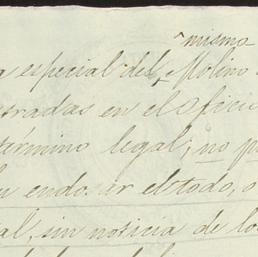 mismo
a especial del Molino
tradas en el oficio
término legal; no p
endosar el todo, o
al, sin noticia de los